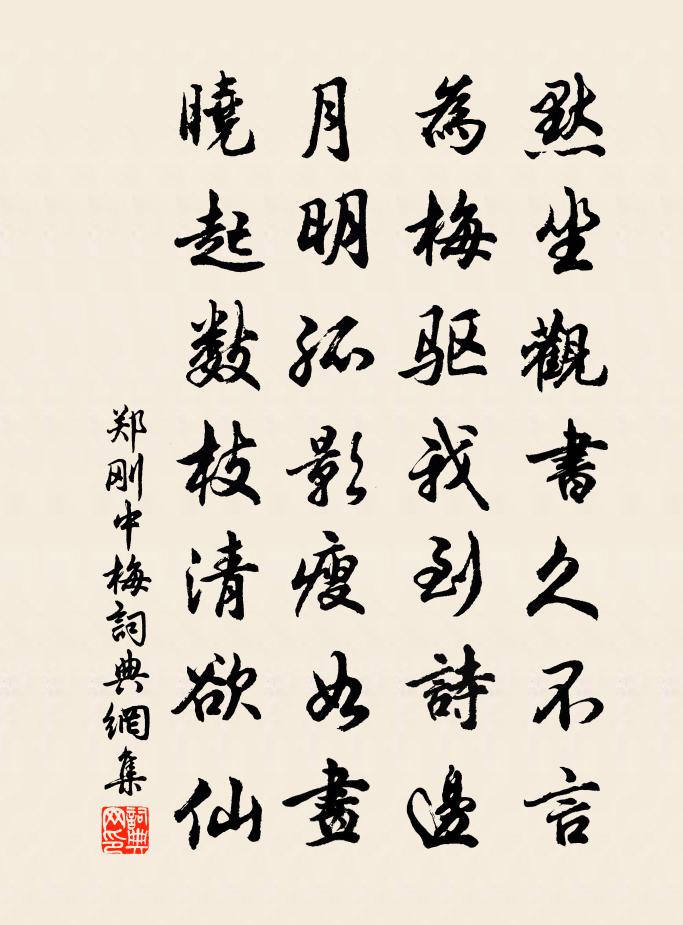 默坐觀書久不言
為梅驱我到詩邊
月明孤影瘦如畫
曉起数枝清欲仙
郑刚中梅詞典網集
詞典网印